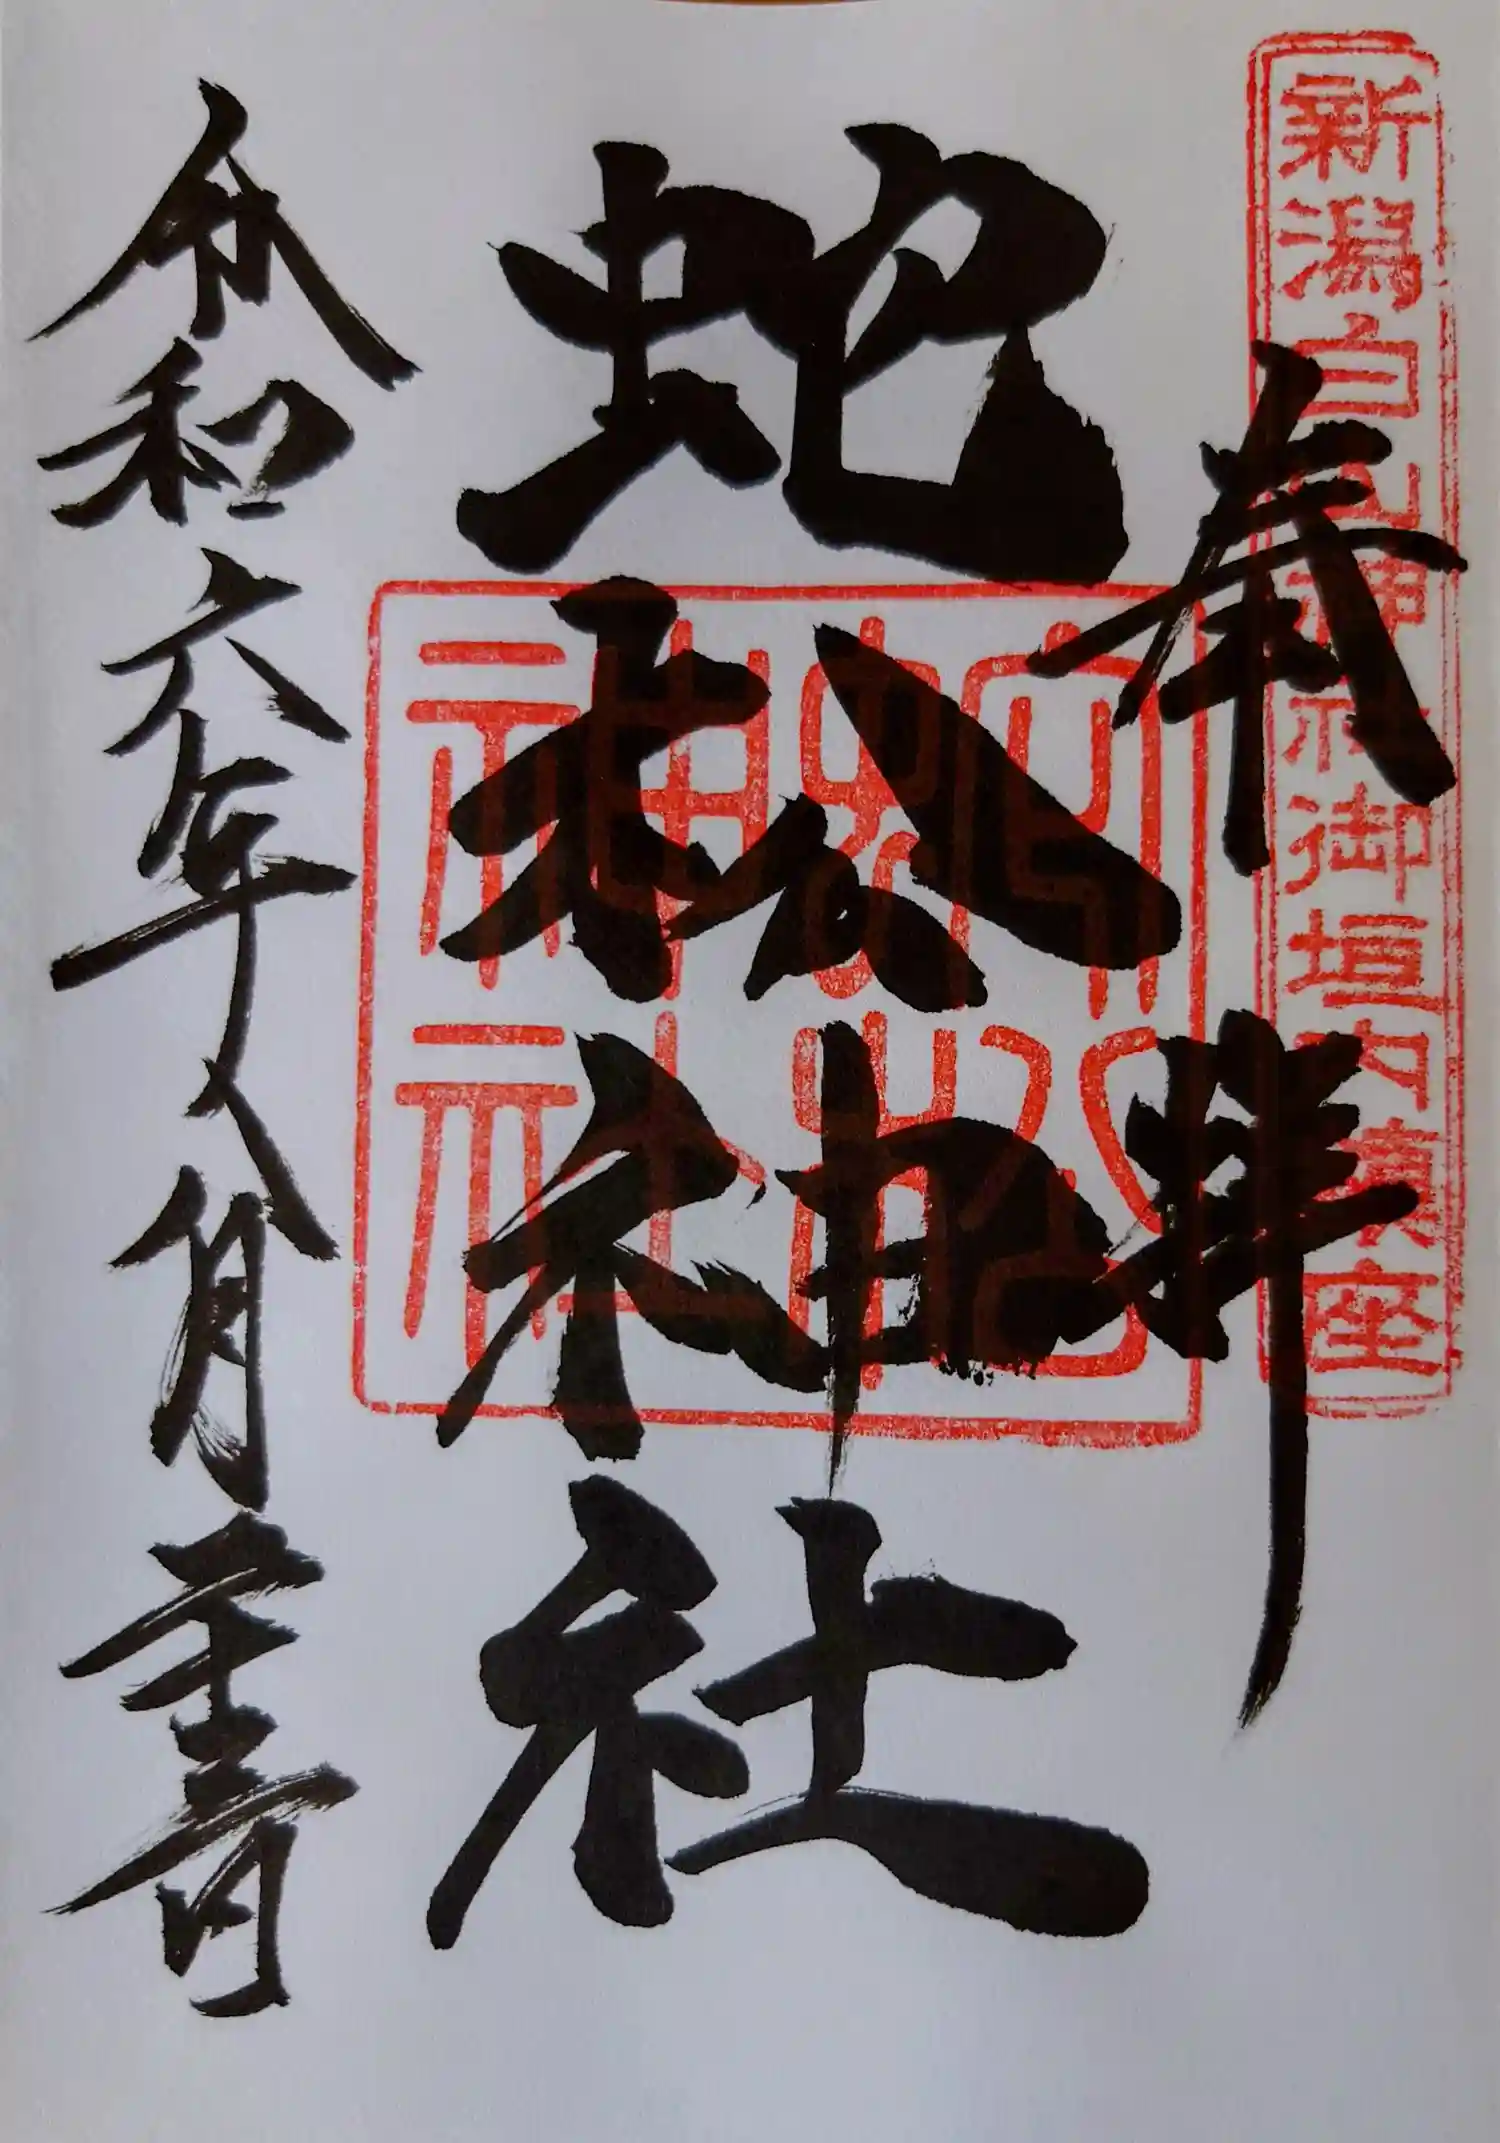 新潟白山神社御垣内鎮座
奉拝
蛇松神社
蛇松神社
令和六年八月